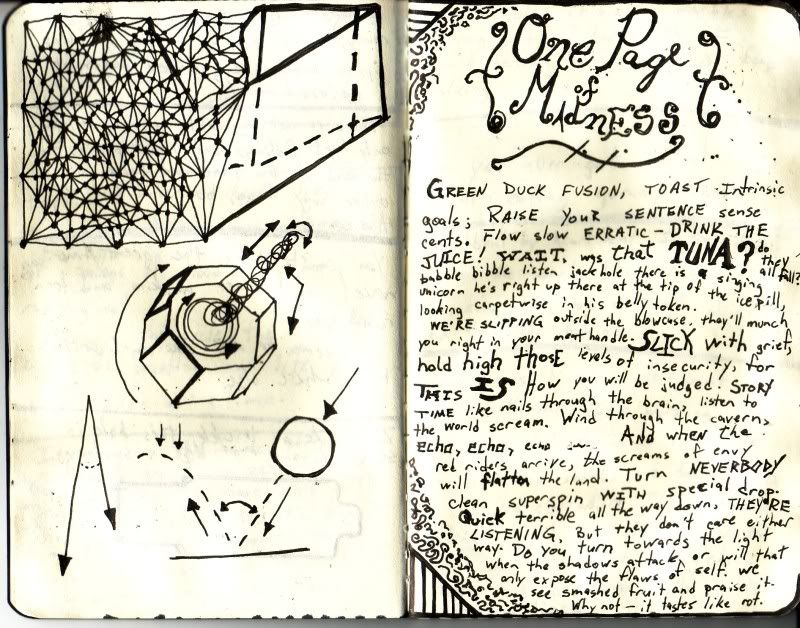 One Page
of
Madness
GREEN DUCK FUSION, TOAST Intrinsic
goals; RAISE YOUR SENTENCE sense
cents. Flow slow ERRATIC - DRINK THE
JUICE! WAIT, was that TUNA? do they
babble bibble listen jackhole there is a singing all fall?
unicorn he's right up there at the tip of the ice pill,
looking carpetwise in his belly token.
WE'RE SLIPPING outside the blowcase, they'll munch
you right in your meat handle. SLICK with grief,
hold high THOSE levels of insecurity, for
THIS IS How you will be judged. STORY
TIME like nails through the brain, listen to
the world scream. Wind through the cavern,
ECHO, ECHO, echo And when the
red riders arrive, the screams of envy
will flatten the land. Turn NEVERBODY
clean superspin WITH special drop.
Quick terrible all the way down, THEY'RE
LISTENING, But they don't care either
way. Do you turn towards the light
when the shadows attack or will that
only expose the flaws of self. we
see smashed fruit and praise it.
Why not - it tastes like rot.